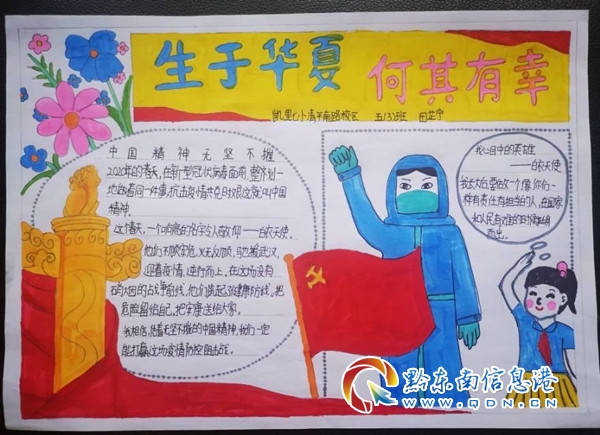 生于华夏 何其有幸
凯里七小清平南路校区 五(3)班 田芷宁
中国精神无坚不摧
2020年的春天,在新型冠状病毒面前,整齐划一
地做着同一件事,抗击疫情共克时艰这就叫中国
精神。
这个春天,一个响亮的名字令人敬仰——白衣天使。
他们不顾安危,义无反顾,驰援武汉,
迎着疫情,逆行而上,在这场没有
硝烟的战争前线,他们筑起了健康防线,把
危险留给自己,把安康送给大家。
我相信,凭着无坚不摧的中国精神,我们一定
能打赢这场疫情防控阻击战。
我心目中的英雄
——白衣天使
我长大后要做一个像你们一
样有责任有担当的人,在国家
和人民有难的时候挺身
而出。
黔东南信息港
www.QDN.cn